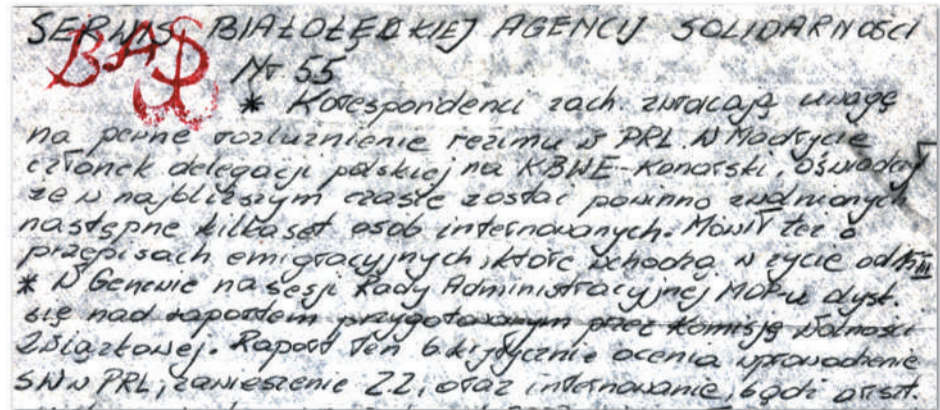 SERWIS BIAŁOŁĘDKIEJ AGENCJI SOLIDARNOŚCI
BAS
Nr. 55
* Korespondenci zach. zwracają uwagę
na pewne rozluźnienie reżimu w PRL. W Madrycie
członek delegacji polskiej na KBWE-Konarski, oświadczył
że w najbliższym czasie zostać powinno zwolnionych
następne kilkaset osób internowanych. Mówił też o
przepisach emigracyjnych, które wchodzą w życie od
* W Genewie na sesji Rady Administracyjnej MOP-u dysk.
się nad raportem przygotowanym przez Komisję Wolności
Związkowej. Raport ten b. krytycznie ocenia wprowadzenie
SW w PRL, zawieszenie ZZ, oraz internowanie, bądź areszt.